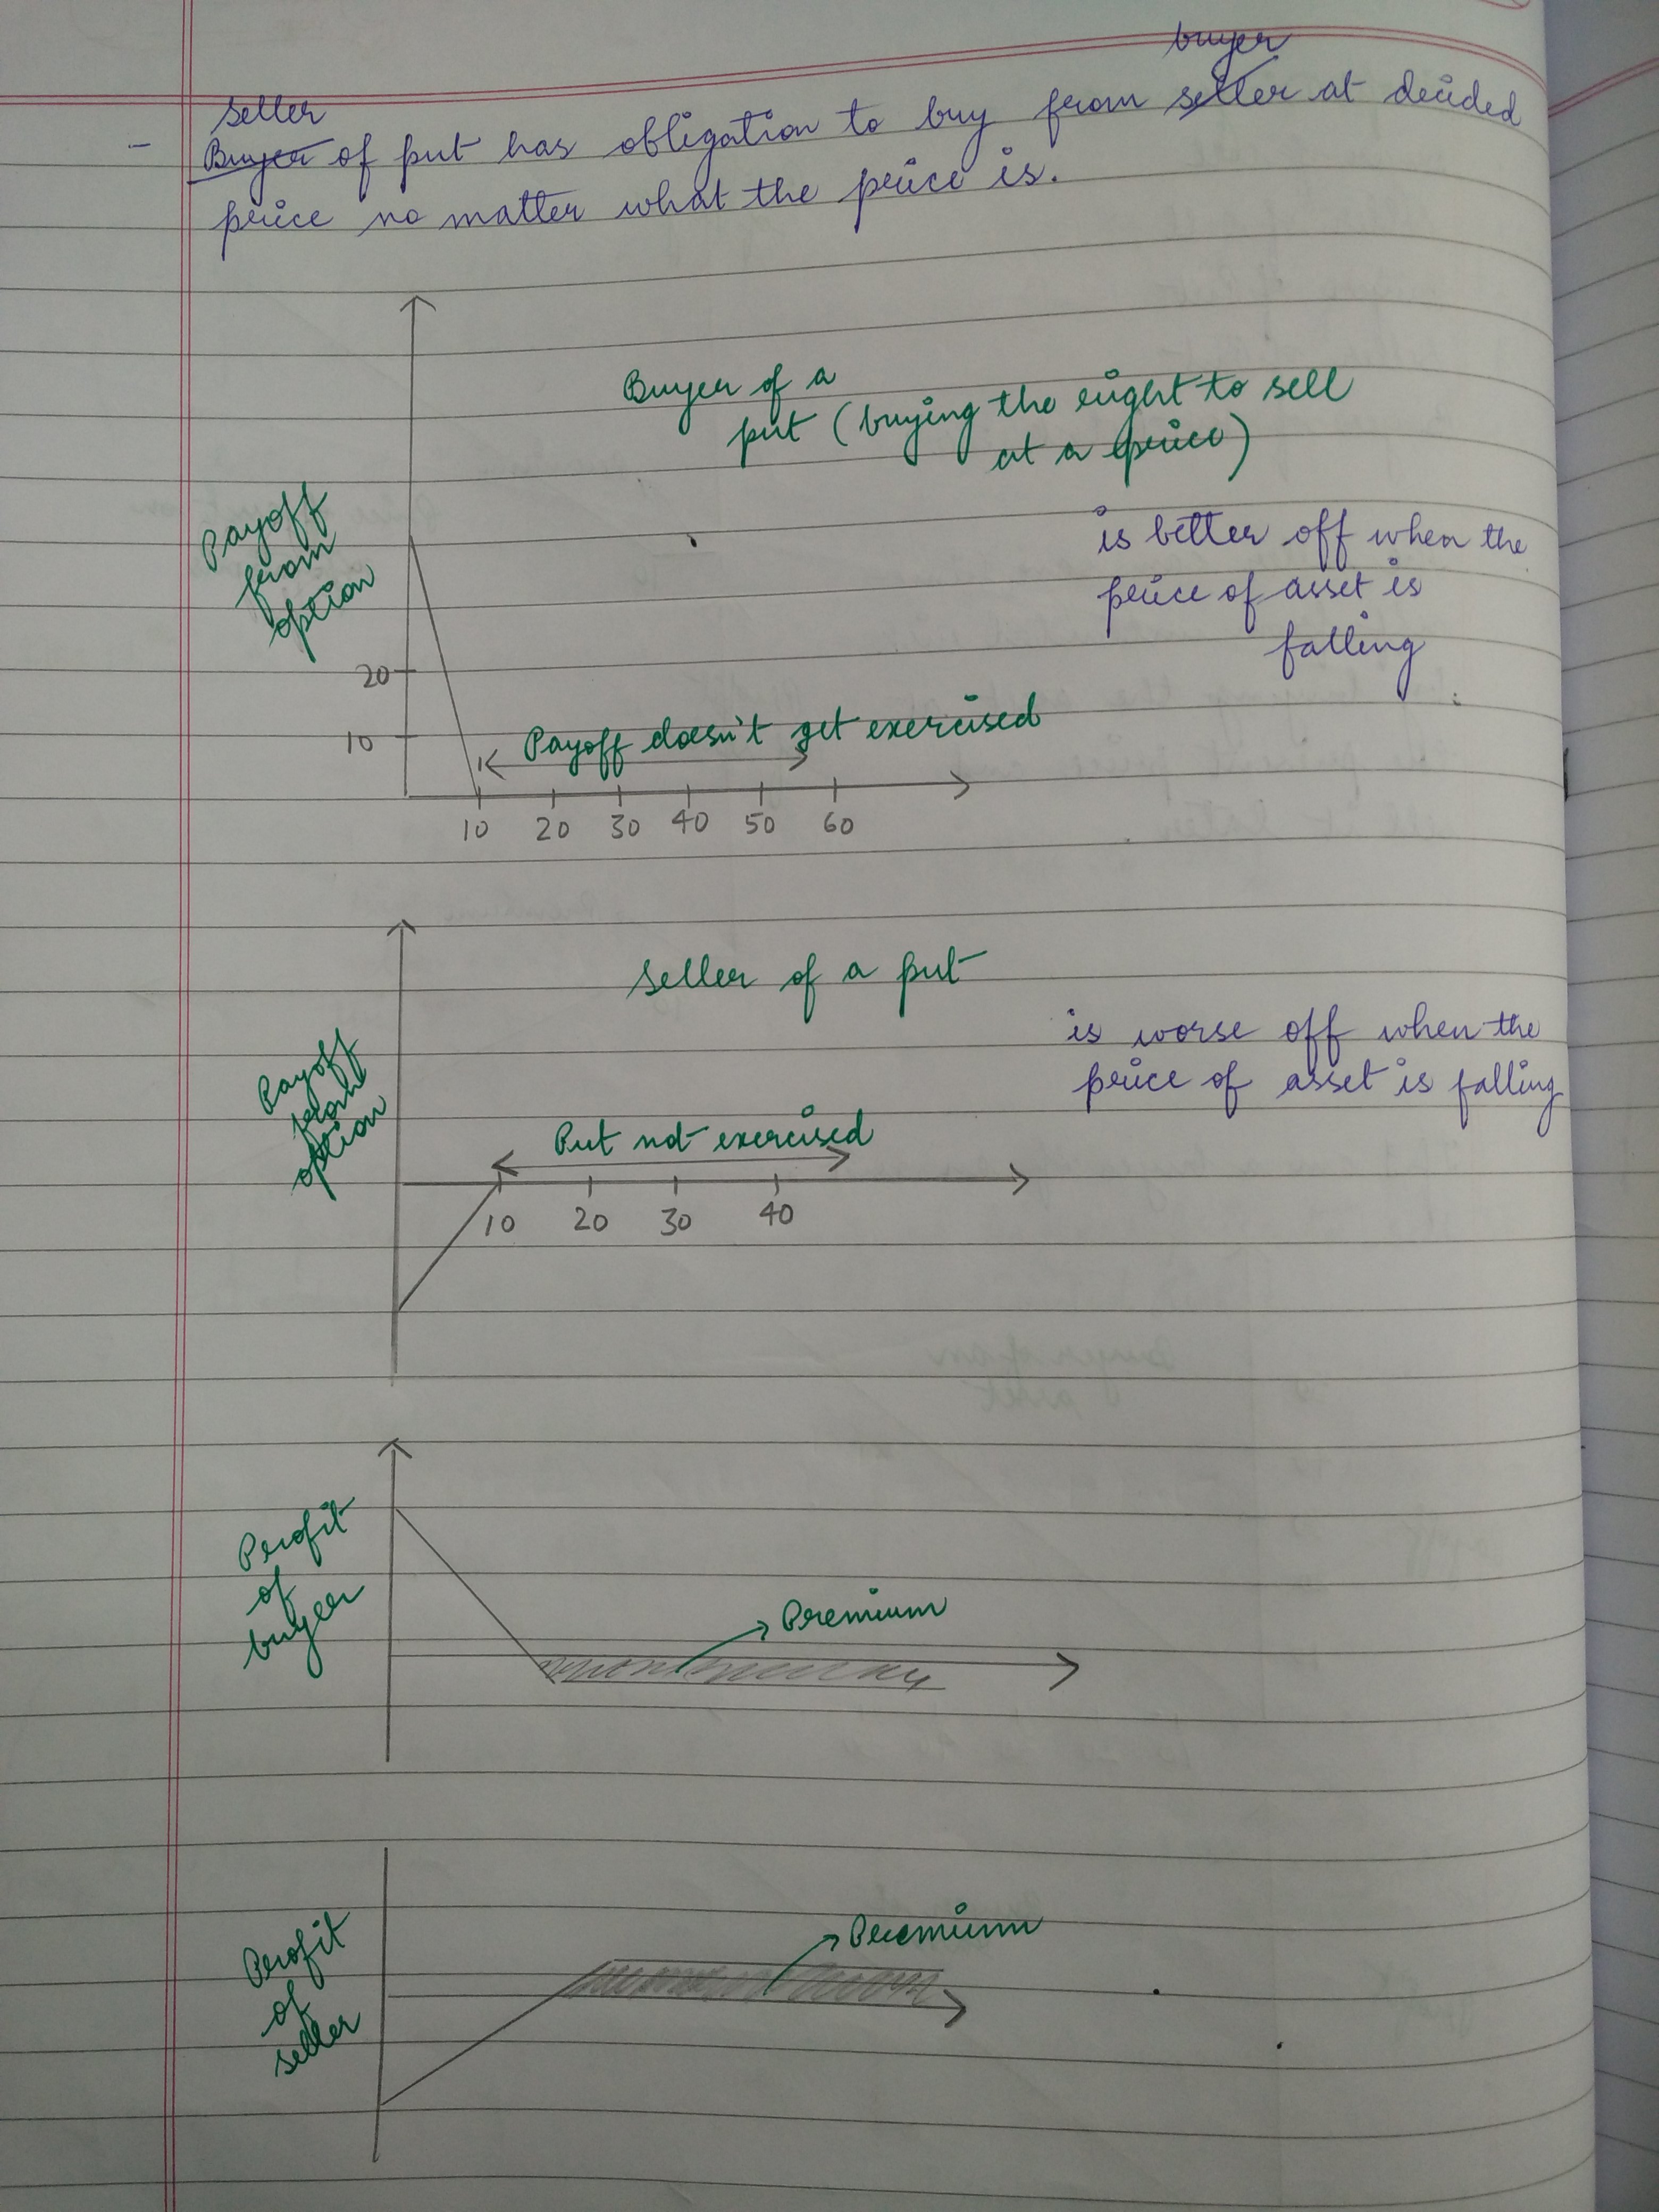 buyer
seller
- Buyer of put has obligation to buy from seller at decided
price no matter what the price is.
Buyer of a
put (buying the right to sell
at a price)
is better off when the
price of asset is
falling
Payoff
from
option
20
10
Payoff doesn't get exercised
10 20 30 40 50 60
seller of a put
is worse off when the
price of asset is falling
Payoff
from
option
Put not exercised
10 20 30 40
Profit
of
buyer
Premium
Profit
of
seller
Premium